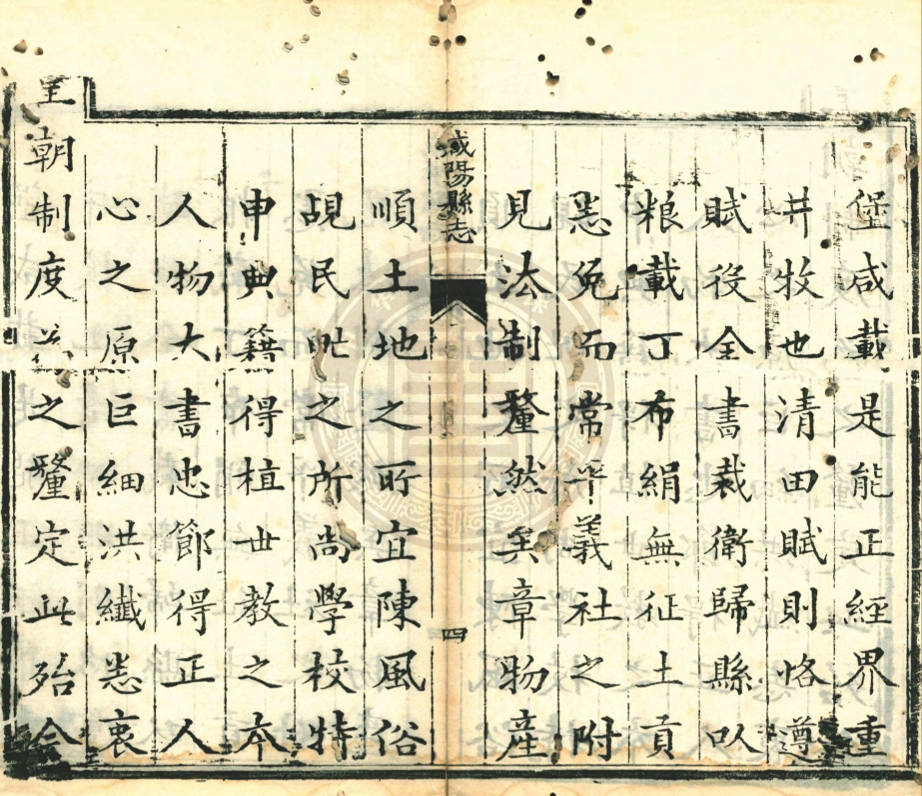 堡咸載是能正經界重
井牧也清田賦則恪遵
賦役全書裁衛歸縣以
粮載丁布絹無征土貢
悉免而常平義社之附
見法制釐然矣章物產
咸陽縣志
四
順土地之所宜陳風俗
覘民甿之所尚學校特
申典籍得植世教之本
人物大書忠節得正人
心之原巨細洪纖悉衷
皇朝制度 之釐定此殆合